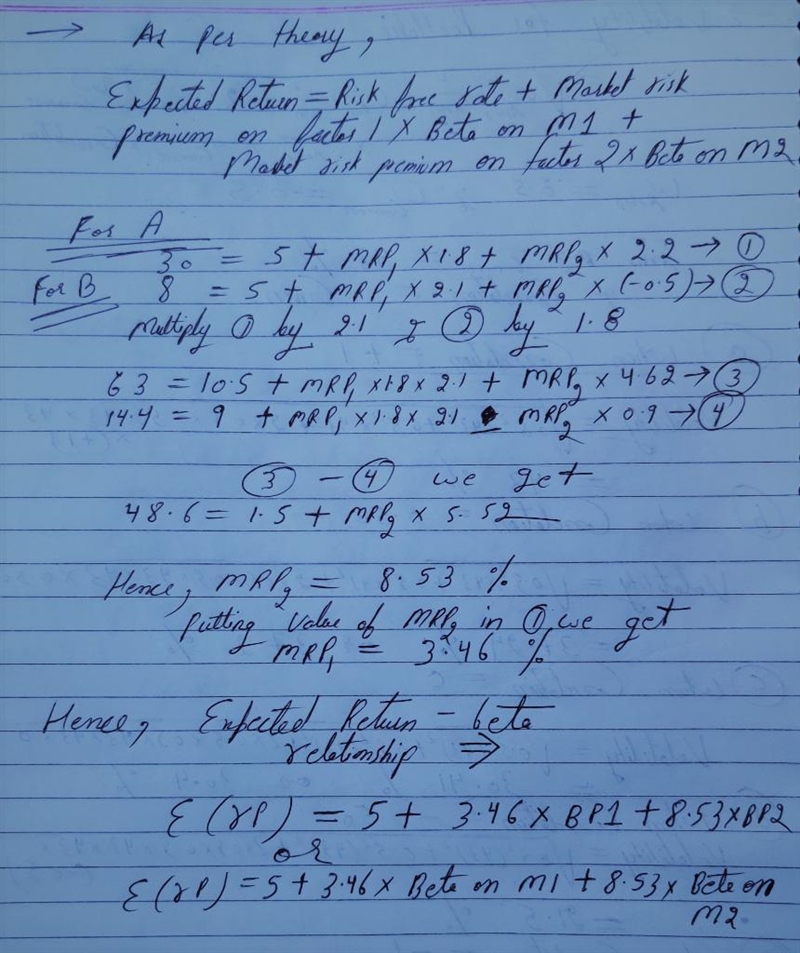 → As per theory,
Expected Return = Risk free rate + Market risk
premium on factor 1 X Beta on m1 +
Market risk premium on factor 2 x Beta on M2
For A
30 = 5 + MRP1 X 1.8 + MRP2 X 2.2 → ①
For B 8 = 5 + MRP1 X 2.1 + MRP2 X (-0.5) → ②
Multiply ① by 2.1 & ② by 1.8
63 = 10.5 + MRP1 X 1.8 X 2.1 + MRP2 X 4.62 → ③
14.4 = 9 + MRP1 X 1.8 X 2.1 - MRP2 X 0.9 → ④
③ - ④ we get
48.6 = 1.5 + MRP2 X 5.52
Hence, MRP2 = 8.53 %
Putting Value of MRP2 in ①, we get
MRP1 = 3.46 %
Hence, Expected Return - beta
relationship ⇒
E(rP) = 5 + 3.46 x BP1 + 8.53 x BP2
or
E(rP) = 5 + 3.46 x Beta on m1 + 8.53 x Beta on
M2